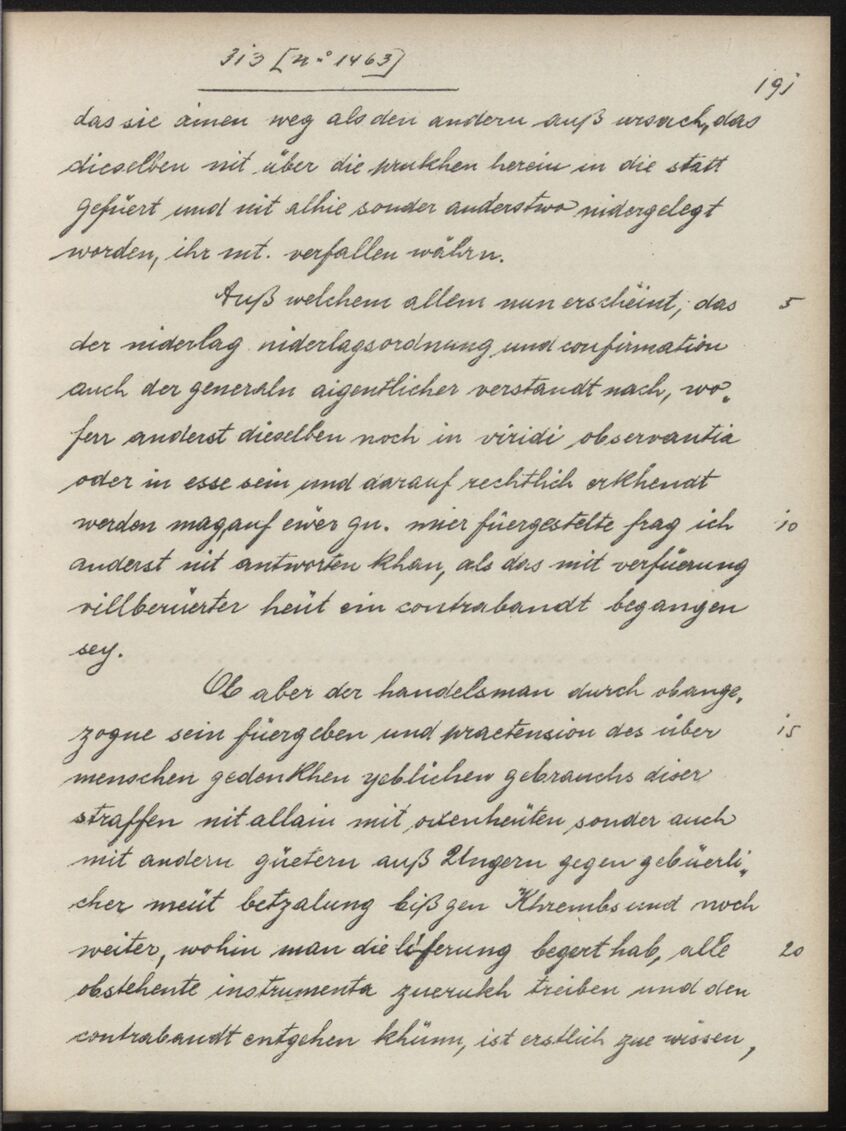 313 [n:o 1463]
191
das sie ainen weg als den andern auß ursach, das
dieselben nit über die prukhen herein in die statt
gefüert und nit alhie sonder anderstwo nidergelegt
worden, ihr mt. verfallen währn.
Auß welchem allem nun erscheint, das 5
der niderlag niderlagsordnung und confirmation
auch der generaln aigentlicher verstandt nach, wo„
ferr anderst dieselben noch in viridi observantia
oder in esse sein und darauf rechtlich erkhendt
werden mag, auf ewer gn. mier füergestelte frag ich 10
anderst nit antworten khan, als das mit verfüerung
villberüerter heüt ein contrabandt begangen
sey.
Ob aber der handelsman durch obange„
zogne sein füergeben und praetension des über 15
menschen gedenkhen yeblichen gebrauchs diser
straffen nit allain mit oxenheüten sonder auch
mit andern güetern auß Ungern gegen gebüerli„
cher meüt betzalung biß gen Khrembs und noch
weiter, wohin man die liferung begert hab, alle 20
obstehente instrumenta zuerukh treiben und den
contrabandt entgehen khünn, ist erstlich zue wissen,